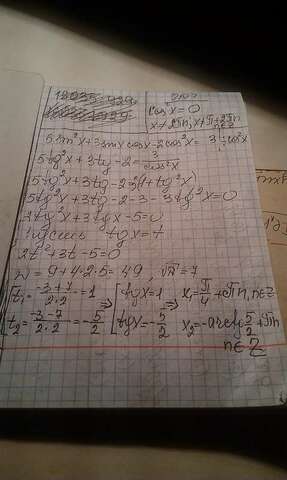 cos²x=0
5sin²x+3sinx cosx-2cos²x=3 |:cos²x
5tg²x+3tg-2=3/cos²x
5tg²x+3tg-2=3(1+tg²x)
5tg²x+3tg-2-3-3tg²x=0
2tg²x+3tgx-5=0
Пусть tgx=t
2t²+3t-5=0
D=9+4·2·5=49, √D=7
t₁=(-3+7)/(2·2)=1 [tgx=1 ⇒ x₁=π/4+πn, n∈Z
t₂=(-3-7)/(2·2)=-5/2 [tgx=-5/2 x₂=-arctg 5/2+πn
n∈Z